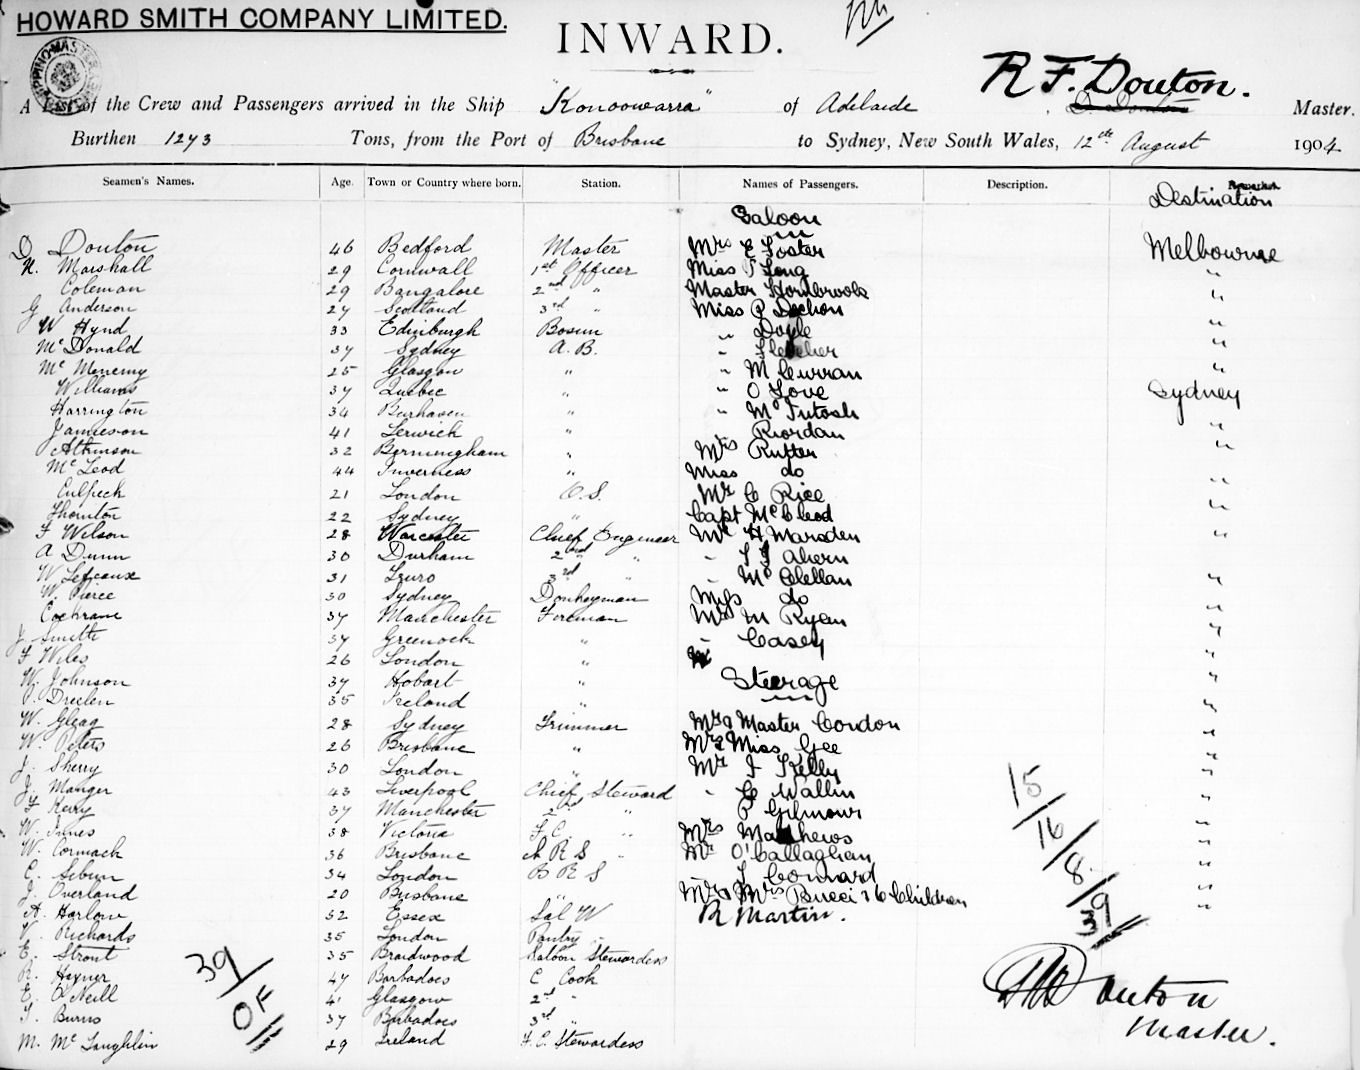 HOWARD SMITH COMPANY LIMITED.
INWARD.
R F. Douton.
A List of the Crew and Passengers arrived in the Ship "Konoowarra" of Adelaide, D. Douton Master.
Burthen 1273 Tons, from the Port of Brisbane to Sydney, New South Wales, 12th August 1904
Seamen's Names. Age. Town or Country where born. Station. Names of Passengers. Description. Remarks. Destination
Saloon
D Douton 46 Bedford Master Mrs E Foster Melbourne
H. Marshall 29 Cornwall 1st Officer Miss Long "
Coleman 29 Bangalore 2nd " Master Hornbrook "
G Anderson 27 Scotland 3rd " Miss P "
W Hynd 33 Edinburgh Bosun " Doyle "
McDonald 37 Sydney A. B. " Fletcher "
Mc Menemy 25 Glasgow " " M Curran "
Williams 37 Quebec " " O Love Sydney
Harrington 34 Berhaven " " McIntosh "
Jamieson 41 Lerwick " Riordan "
Atkinson 32 Berningham " Mrs Rutter
McLeod 44 Inverness " Miss do "
Culpeck 21 London O. S. Mr C Rice "
Thornton 22 Sydney " Capt McCleod "
F Wilson 28 Worcester Chief Engineer Mr H Marsden "
A Dunn 30 Durham 2nd " " Ahern
W 31 Truro 3rd " " McClellan "
W. Pierce 30 Sydney Donkeyman Miss do "
Cochrane 37 Manchester Foreman Mrs M Ryan "
J Smith 37 Greenock " " Casey "
F Wiles 26 London "
W. Johnson 37 Hobart " Steerage "
P. Dreelen 35 Ireland "
W. Gleag 28 Sydney Trimmer Mr & Master Condon "
W. Peters 26 Brisbane " Mrs & Miss Gee "
J. Sherry 30 London " Mr J Kelly "
J. Manger 43 Liverpool Chief Steward " C Wallin "
Kerry 37 Manchester 2nd " P Gilmour "
W. Innes 38 Victoria F. C. " Mrs Matthews "
W. Cormack 36 Brisbane A R S " Mr O'Callaghan "
C. 34 London B R S " Connard "
J. Overland 20 Brisbane " Mr & Mrs Bucci & 6 Children "
A. Harlow 32 Essex Sal W R Martin.
V. Richards 35 London Pantry "
E. Strout 35 Braidwood Saloon Stewardess
R. Hayner 47 Barbadoes C Cook
E. O'Neill 41 Glasgow 2nd "
T. Burns 37 Barbadoes 3rd "
M. McLaughlin 29 Ireland F. C. Stewardess
39
OF
15/16/8/9
39
Douton
Master.